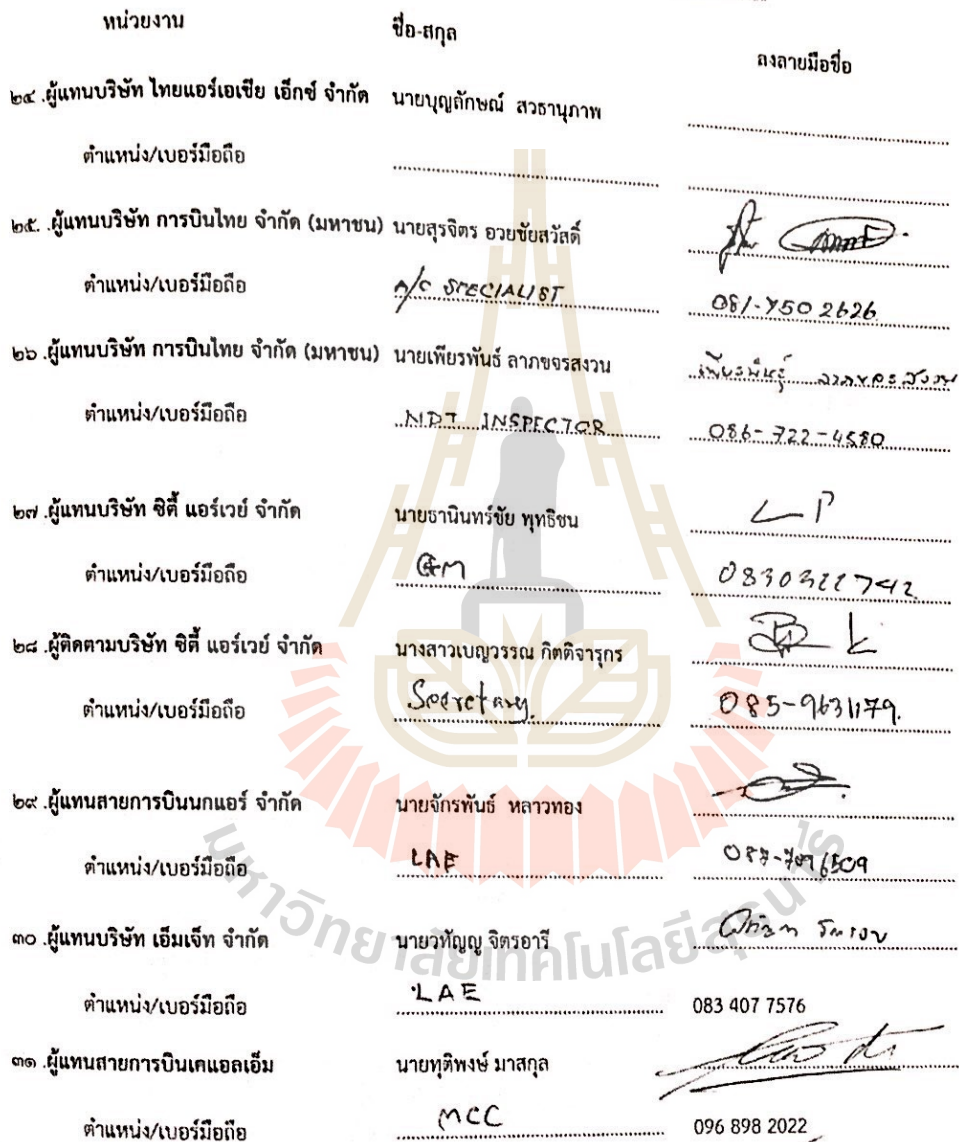 หน่วยงาน ชื่อ-สกุล ลงลายมือชื่อ
๒๔ .ผู้แทนบริษัท ไทยแอร์เอเชีย เอ็กซ์ จำกัด นายบุญลักษณ์ สวธานุภาพ
ตำแหน่ง/เบอร์มือถือ
๒๕. .ผู้แทนบริษัท การบินไทย จำกัด (มหาชน) นายสุรจิตร อวยชัยสวัสดิ์
ตำแหน่ง/เบอร์มือถือ A/C SPECIALIST 081-7502626
๒๖ .ผู้แทนบริษัท การบินไทย จำกัด (มหาชน) นายเพียรพันธ์ ลาภขจรสงวน
ตำแหน่ง/เบอร์มือถือ NDT INSPECTOR 086-722-4580
๒๗ .ผู้แทนบริษัท ซิตี้ แอร์เวย์ จำกัด นายธานินทร์ชัย พุทธิชน
ตำแหน่ง/เบอร์มือถือ GM
๒๘ .ผู้ติดตามบริษัท ซิตี้ แอร์เวย์ จำกัด นางสาวเบญวรรณ กิตติจารุกร
ตำแหน่ง/เบอร์มือถือ Secretary. 085-9631179.
๒๙ .ผู้แทนสายการบินนกแอร์ จำกัด นายจักรพันธ์ หลาวทอง
ตำแหน่ง/เบอร์มือถือ LAE
๓๐ .ผู้แทนบริษัท เอ็มเจ็ท จำกัด นายวทัญญู จิตรอารี
ตำแหน่ง/เบอร์มือถือ LAE 083 407 7576
๓๑ .ผู้แทนสายการบินเคแอลเอ็ม นายทุติพงษ์ มาสกุล
ตำแหน่ง/เบอร์มือถือ MCC 096 898 2022
มหาวิทยาลัยเทคโนโลยีสุรนารี